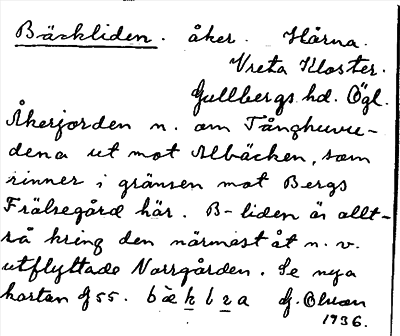 Bäckliden. åker. Hårna.
Vreta Kloster.
Gullbergs hd. Ögl.
Åkerjorden n. om Tånghuvu-
dena ut mot Albäcken, som
rinner i gränsen mot Bergs
Frälsegård här. B-liden är allt-
så kring den närmast åt n. v.
utflyttade Norrgården. Se nya
kartan 55. G. Olson
1936.